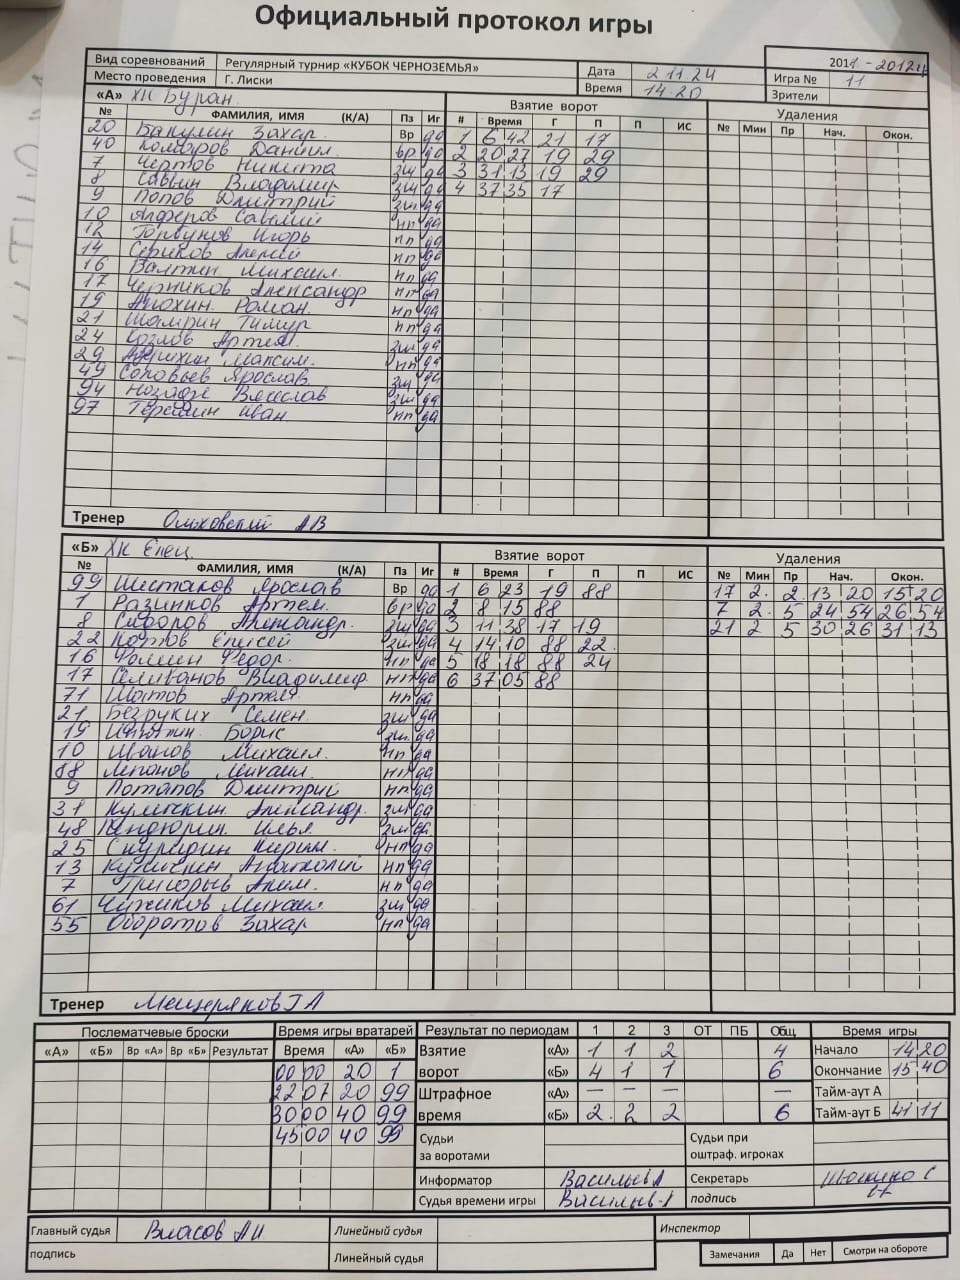 Официальный протокол игры
Вид соревнований Регулярный турнир «КУБОК ЧЕРНОЗЕМЬЯ» Дата 2 11.24 2011.-2012
Место проведения Г. Лиски Время 14.20 Игра № 11
Зрители
«А» ХК Буран Взятие ворот Удаления
№ ФАМИЛИЯ, ИМЯ (К/А) Пз Иг # Время Г П П ИС № Мин Пр Нач. Окон.
20 Бакулин Захар Вр да 1 6 42 21 17
40 Комаров Даниил вр да 2 20 27 19 29
7 Чертов Никита зщ да 3 31 13 19 29
8 Савин Владимир зщ да 4 37 35 17
9 Попов Дмитрий зщ да
10 Алферов Савелий нп да
12 Горбунов Игорь нп да
14 Сериков Алексей нп да
16 Валтин Михаил. нп да
17 Черников Александр нп да
19 Анохин Роман. нп да
21 Шамрин Тимур нп да
24 Козлов Артем. зщ да
29 Максим. нп да
49 Соловьев Ярослав зщ да
94 Вячеслав зщ да
97 Терехин Иван нп да
Тренер АВ
«Б» ХК Елец Взятие ворот Удаления
№ ФАМИЛИЯ, ИМЯ (К/А) Пз Иг # Время Г П П ИС № Мин Пр Нач. Окон.
99 Шестаков Ярослав Вр да 1 6 23 19 88 17 2. 2. 13 20 15 20
1 Разинков Артем. вр да 2 8 15 88 7 2. 5 24 54 26 54
8 Сидоров Александр. зщ да 3 11 38 17 19 21 2 5 30 26 31 13
22 Елисей зщ да 4 14 10 88 22.
16 Фомин Федор. нп да 5 18 18 88 24
17 Селиванов Владимир нп да 6 37 05 88
71 Шатов Артем нп да
21 Безруких Семен. зщ да
19 Борис зщ да
10 Иванов Михаил. нп да
88 Михаил нп да
9 Потапов Дмитрий нп да
31 Александр. зщ да
48 Илья зщ да
25 Скуридин Кирилл нп да
13 Анатолий нп да
7 Григорьев Аким. нп да
61 Чужиков Михаил зщ да
55 Оборотов Захар нп да
Тренер Мещеряков ГА
Послематчевые броски Время игры вратарей Результат по периодам 1 2 3 ОТ ПБ Общ Время игры
«А» «Б» Вр «А» Вр «Б» Результат Время «А» «Б» Взятие «А» 1 1 2 4 Начало 14 20
00 00 20 1 ворот «Б» 4 1 1 6 Окончание 15 40
22 07 20 99 Штрафное «А» — — — — Тайм-аут А
30 00 40 99 время «Б» 2. 2 2 6 Тайм-аут Б 41 11
45 00 40 99 Судьи за воротами Судьи при оштраф. игроках
Информатор Васильев А Секретарь
Судья времени игры Васильев А подпись
Главный судья Власов АИ Линейный судья Инспектор
подпись Линейный судья Замечания Да Нет Смотри на обороте